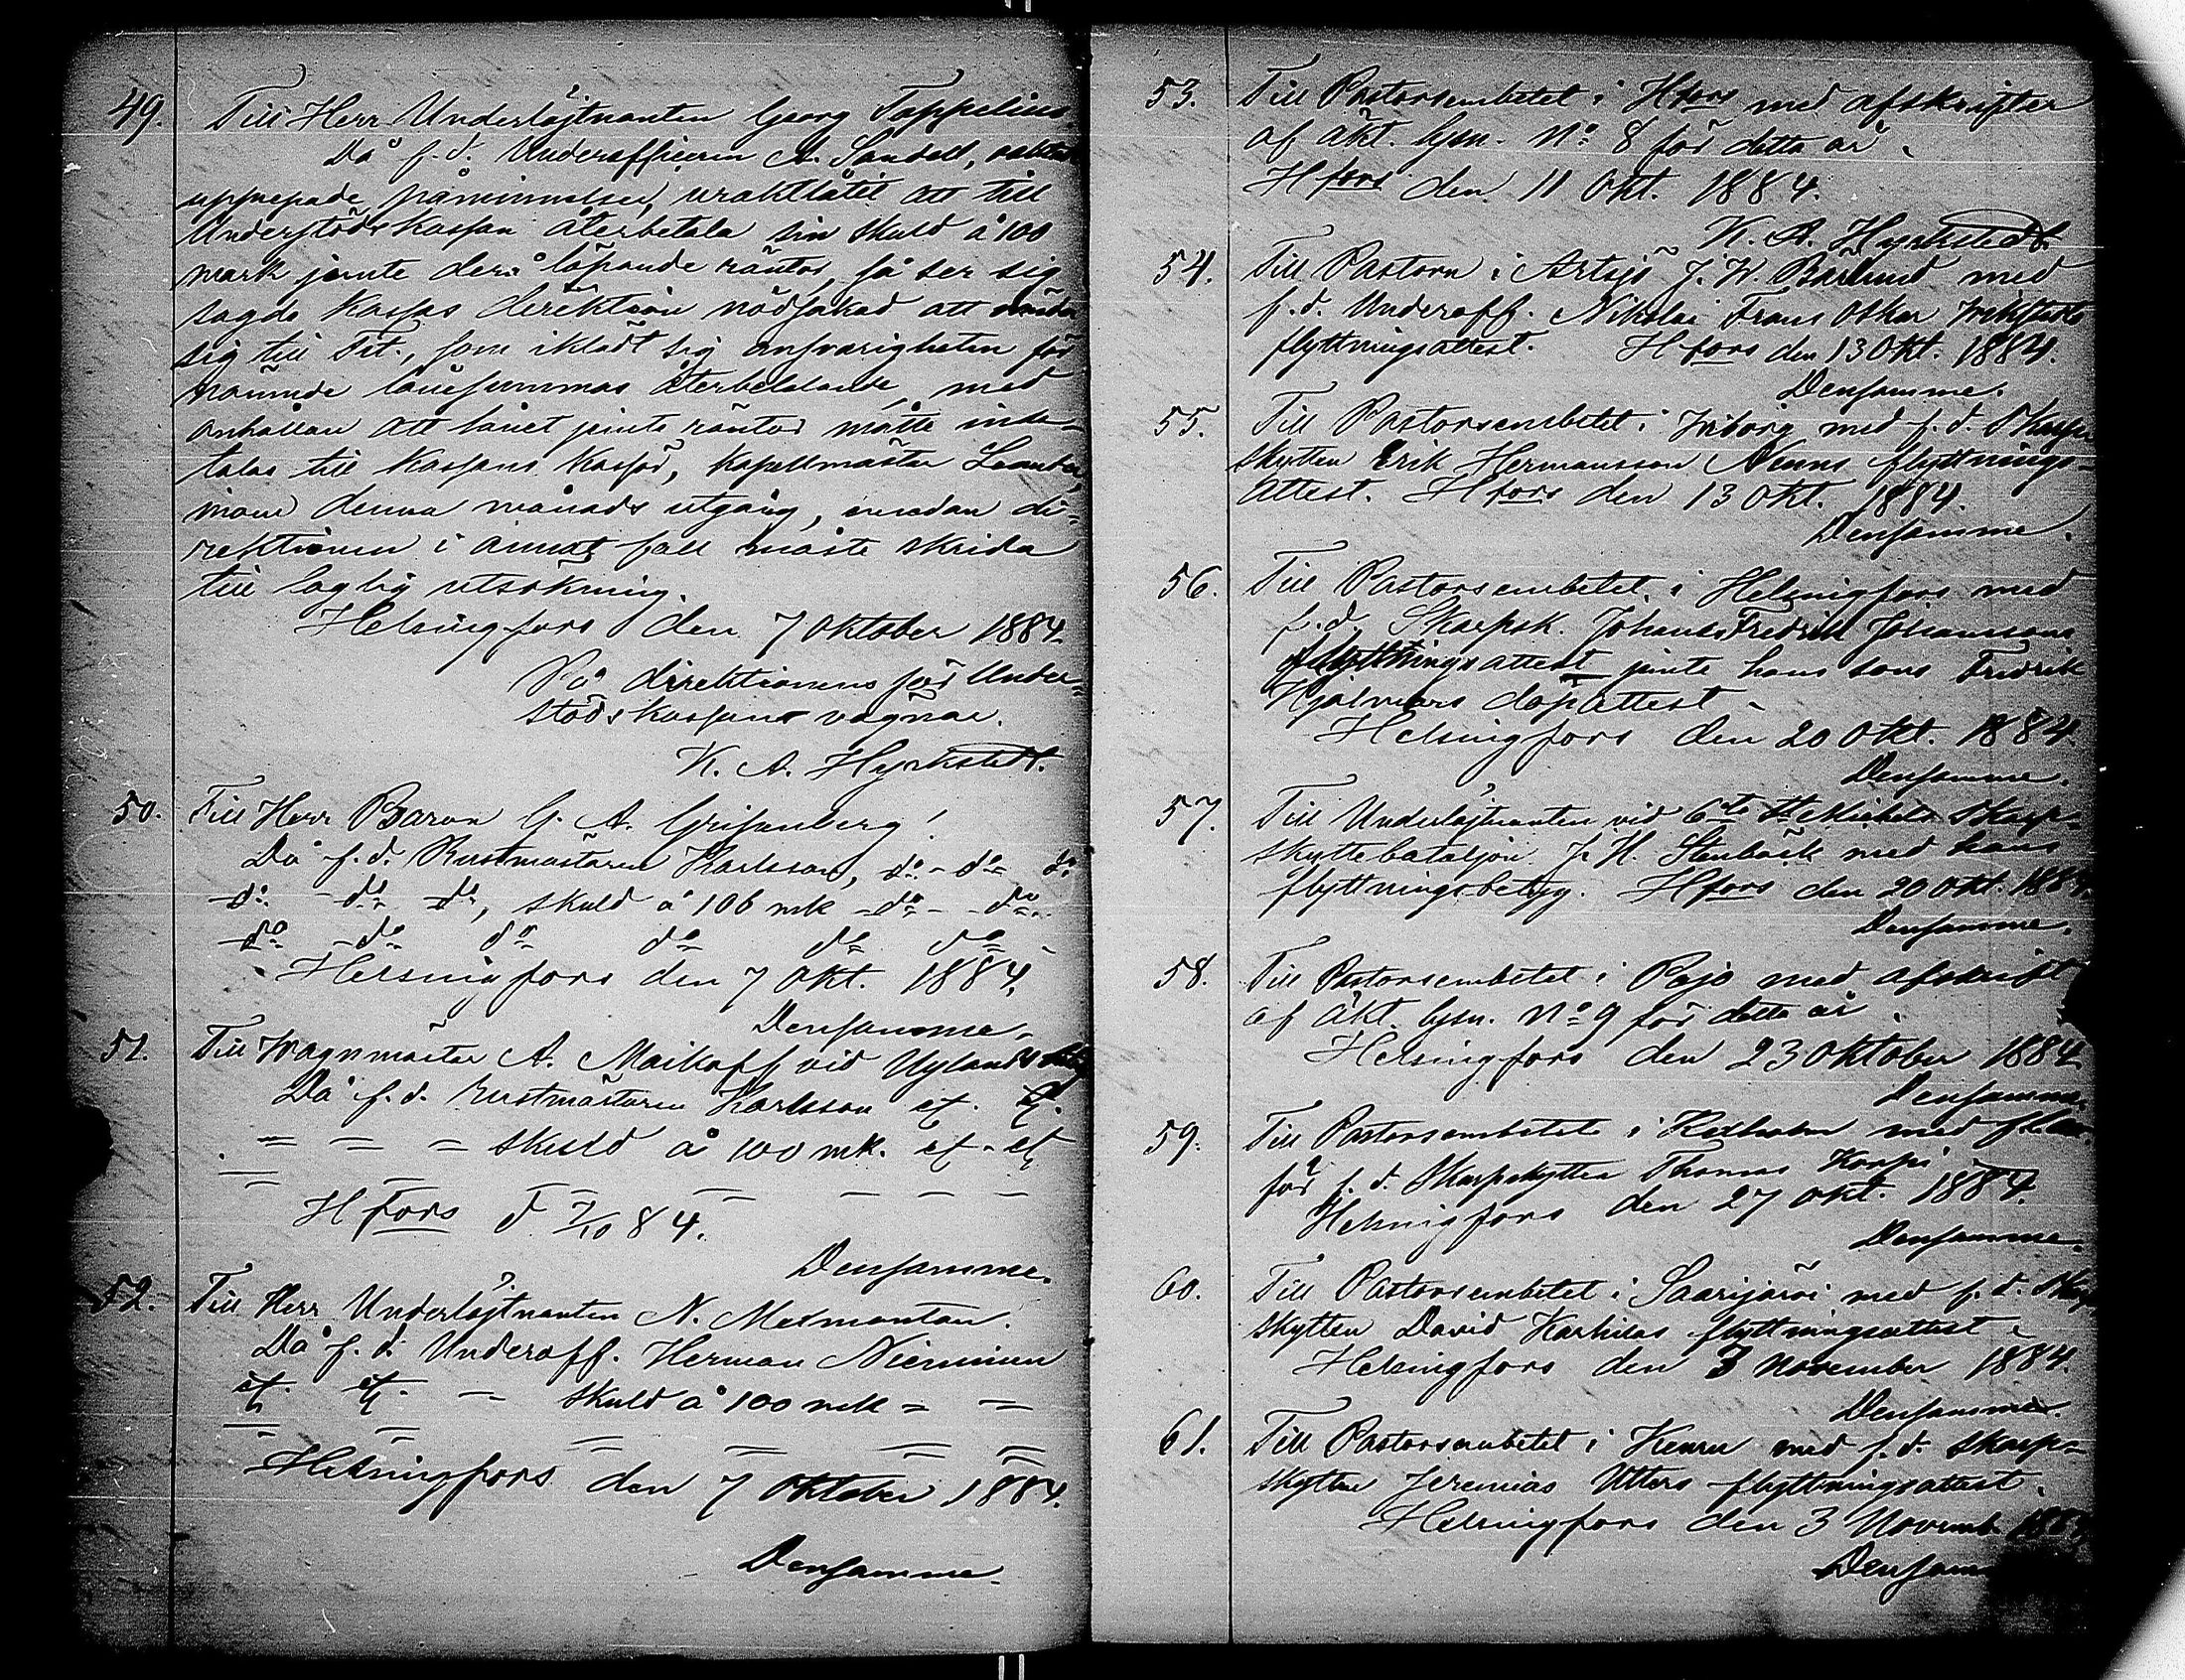 49. Till Herr Underlöjtnanten Georg Toppelius
Då f.d. Underofficeren A. Sandell, oaktat
upprepade påminnelser, uraktlåtit att till
Understödskassan återbetala sin skuld à 100
mark jemte derå löpande räntor, så ser sig
sagde kassas direktion nödsakad att vända
sig till Tit., som iklädt sig ansvarigheten för
nämnde lånesummas återbetalande, med
anhållan att lånet jemte räntor måtte inbe-
talas till kassans kassör, kapellmästar
inom denna månads utgång, emedan di-
rektionen i annat fall måste skrida
till laglig utsökning.
Helsingfors den 7 Oktober 1884.
På direktionens för Under-
stödskassans vägnar.
K. A. Hyrkstedt.
50. Till Herr Baron G. A. Gripenberg!
Då f.d. Rustmästaren Karlsson, do - do do
do - do do, skuld à 106 mk do - do
do - do do do do do
Helsingfors den 7 Okt. 1884.
Densamme.
51. Till Wagnmästar A. Maikoff vid Nylands
Då f.d. Rustmästaren Karlsson etc. etc.
= = = skuld à 100 mk. etc. etc.
Hfors d 7/10 84.
Densamme.
52. Till Herr Underlöjtnanten N. Mexmontan.
Då f.d. Underoff. Herman Nieminen
etc. etc. = skuld à 100 mk = =
= = = = = =
Helsingfors den 7 Oktober 1884.
Densamme.
53. Till Pastorsembetet i Hfors med afskrifter
af äkt. lysn. No 8 för detta år.
Hfors den 11 Okt. 1884.
K. A. Hyrkstedt.
54. Till Pastorn i Artsjö J. W. Barlund med
f.d. Underoff. Nikolai Frans Oskar
flyttningsattest. Hfors den 13 Okt. 1884.
Densamme.
55. Till Pastorsembetet i Wiborg med f.d. Skarp
skytten Erik Hermansson Ninns flyttnings-
attest. Hfors den 13 Okt. 1884.
Densamme.
56. Till Pastorsembetet i Helsingfors med
f.d. Skarpsk. Johannes Fredrik Johanssons
flyttningsattest jemte hans sons Fredrik
Hjalmars dopattest.
Helsingfors den 20 Okt. 1884.
Densamme.
57. Till Underlöjtnanten vid 6te St Michels Skarp-
skyttebataljon J. H. Stenbäck med hans
flyttningsbetyg. Hfors den 20 Okt. 1884.
Densamme.
58. Till Pastorsembetet i Pojo med afskrift
af äkt. lysn. No 9 för detta år.
Helsingfors den 23 Oktober 1884.
Densamme.
59. Till Pastorsembetet i Kexholm med
för f.d. Skarpskytten Thomas Korpi
Helsingfors den 27 Okt. 1884.
Densamme.
60. Till Pastorsembetet i Saarijärvi med f.d. Skarp
skytten David Karhilas flyttningsattest.
Helsingfors den 3 November 1884.
Densamme.
61. Till Pastorsembetet i Keuru med f.d. skarp-
skytten Jeremias Utters flyttningsattest.
Helsingfors den 3 Novemb. 1884.
Densamme